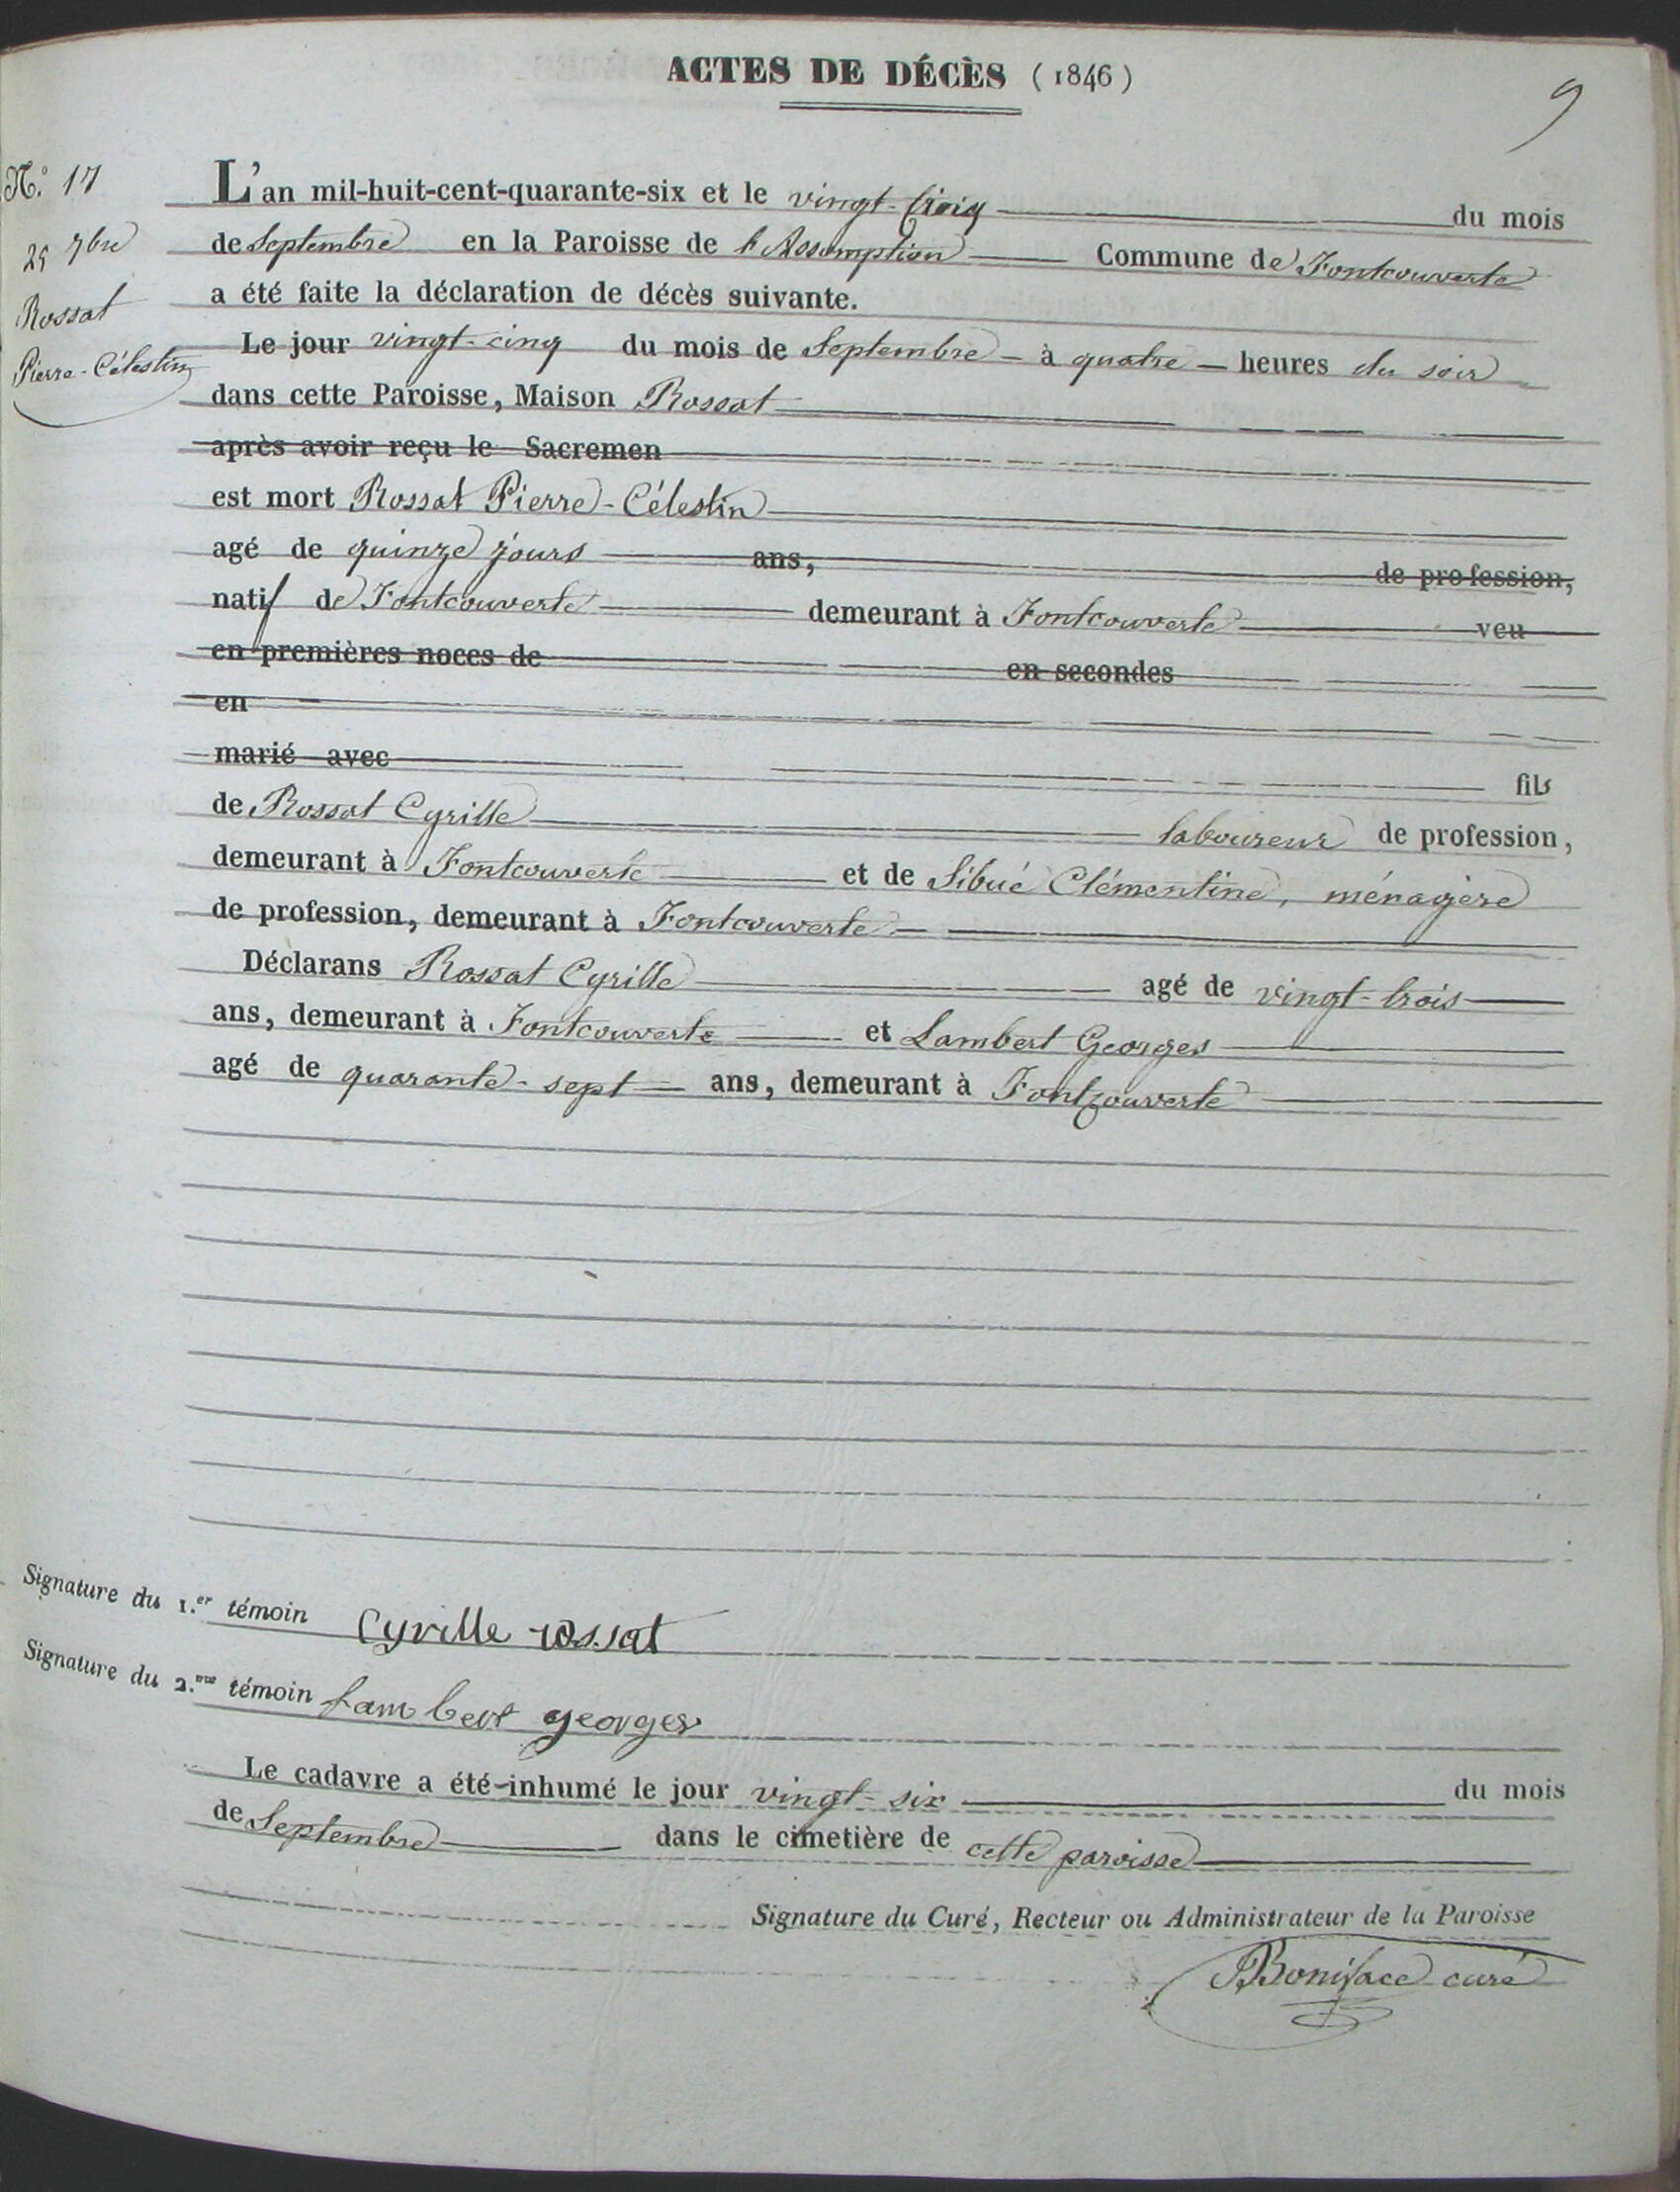 ACTES DE DÉCÈS (1846)
9
N.° 17
25 7bre
Rossat
Pierre-Célestin
L'an mil-huit-cent-quarante-six et le vingt- du mois
de Septembre en la Paroisse de l'Assomption Commune de Fontcouverte
a été faite la déclaration de décès suivante.
Le jour vingt-cinq du mois de Septembre - à quatre - heures du soir
dans cette Paroisse, Maison Rossat
après avoir reçu le Sacremen
est mort Rossat Pierre-Célestin
agé de quinze jours ans, de profession,
natif de Fontcouverte demeurant à Fontcouverte veu
en premières noces de en secondes
en
marié avec fils
de Rossat Cyrille laboureur de profession,
demeurant à Fontcouverte et de Sibué Clémentine, ménagère
de profession, demeurant à Fontcouverte
Déclarans Rossat Cyrille agé de vingt-trois
ans, demeurant à Fontcouverte et Lambert Georges
agé de quarante-sept ans, demeurant à Fontcouverte
Signature du 1.er témoin Cyrille rossat
Signature du 2.me témoin lambert georges
Le cadavre a été inhumé le jour vingt-six du mois
de Septembre dans le cimetière de cette paroisse
Signature du Curé, Recteur ou Administrateur de la Paroisse
Boniface curé